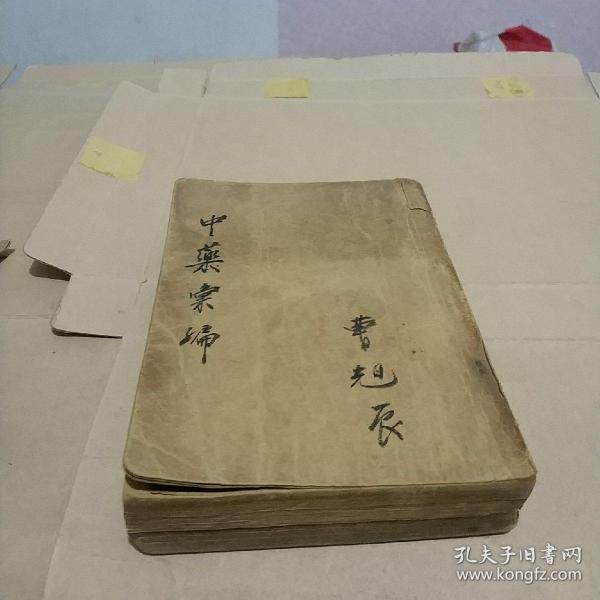 中藥彙編
曹旭辰
孔夫子旧書网
www.kongfz.com